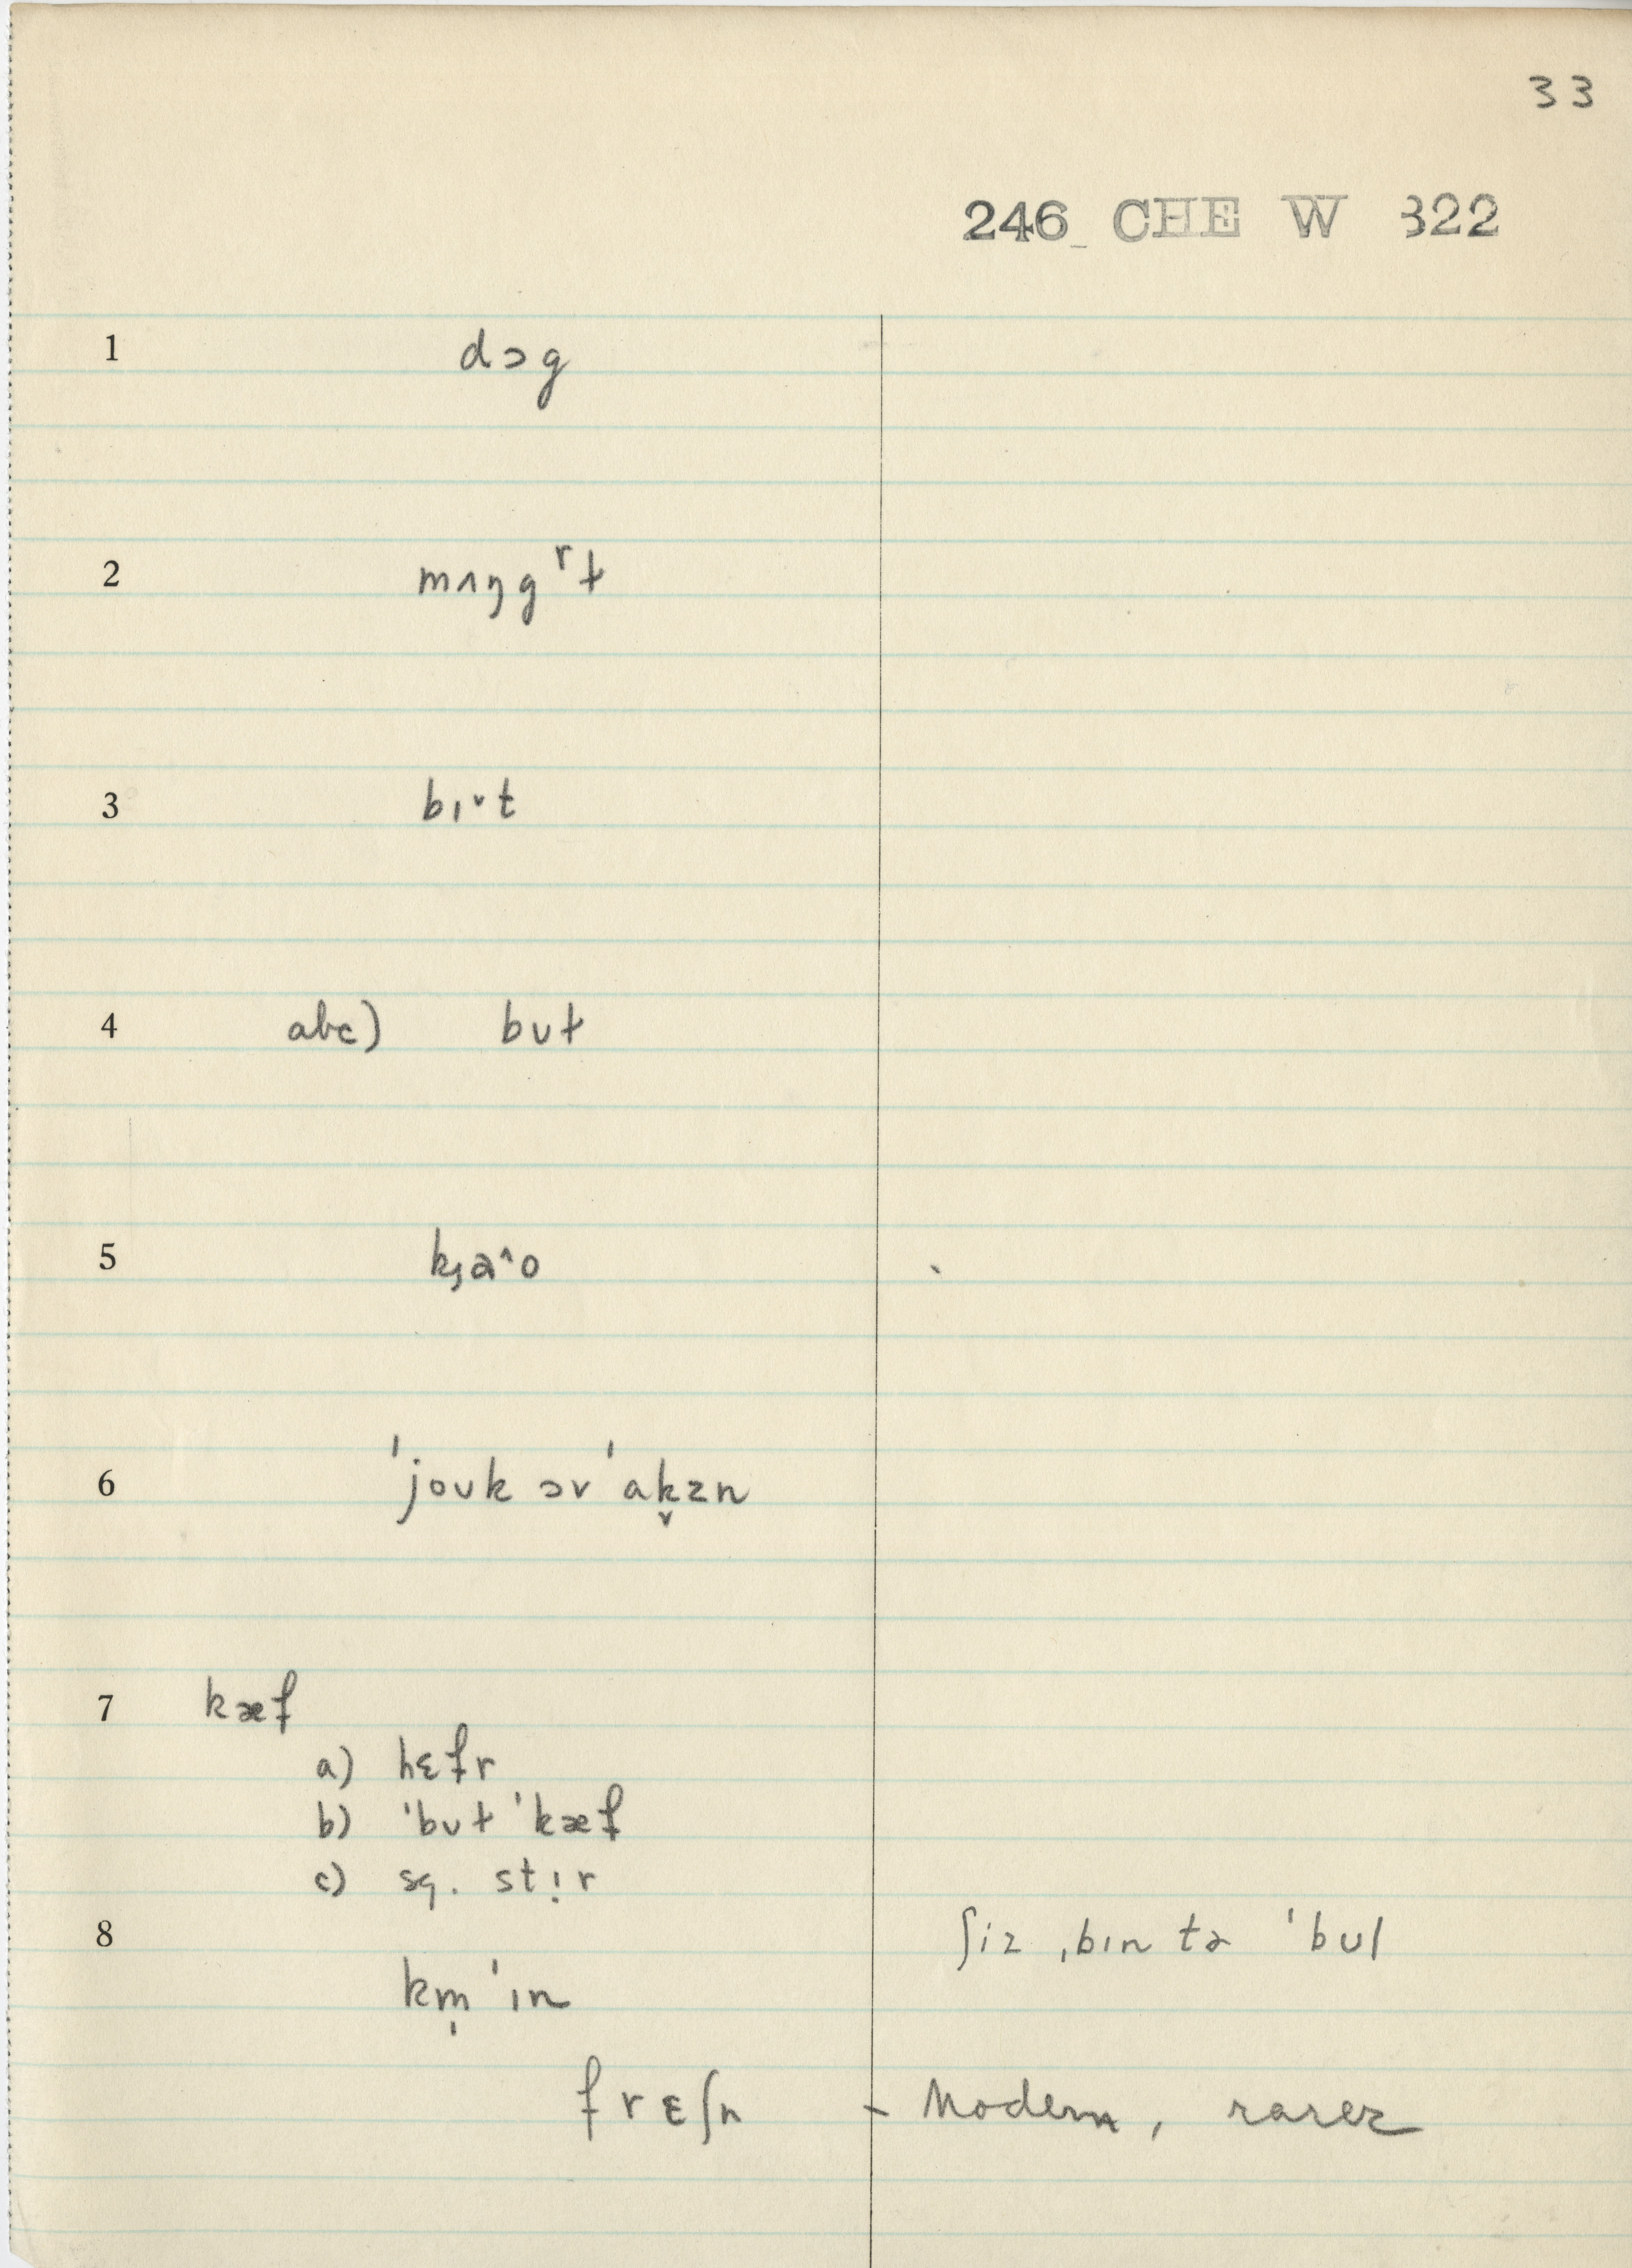 33
246 CHE W 322
1 dɔg
2 mʌŋgʳt
3 bɪˇt
4 abc) bʊt
5 kȷa^o
6 ˈjoʊk əv ˈak̬sn
7 kæf
a) hɛfr
b) ˈbʊt ˈkæf
c) sq. stı̣r
8 ʃiz ˌbɪn tə ˈbʊl
km̩ ˈɪn
frɛʃn - Modern, rarer